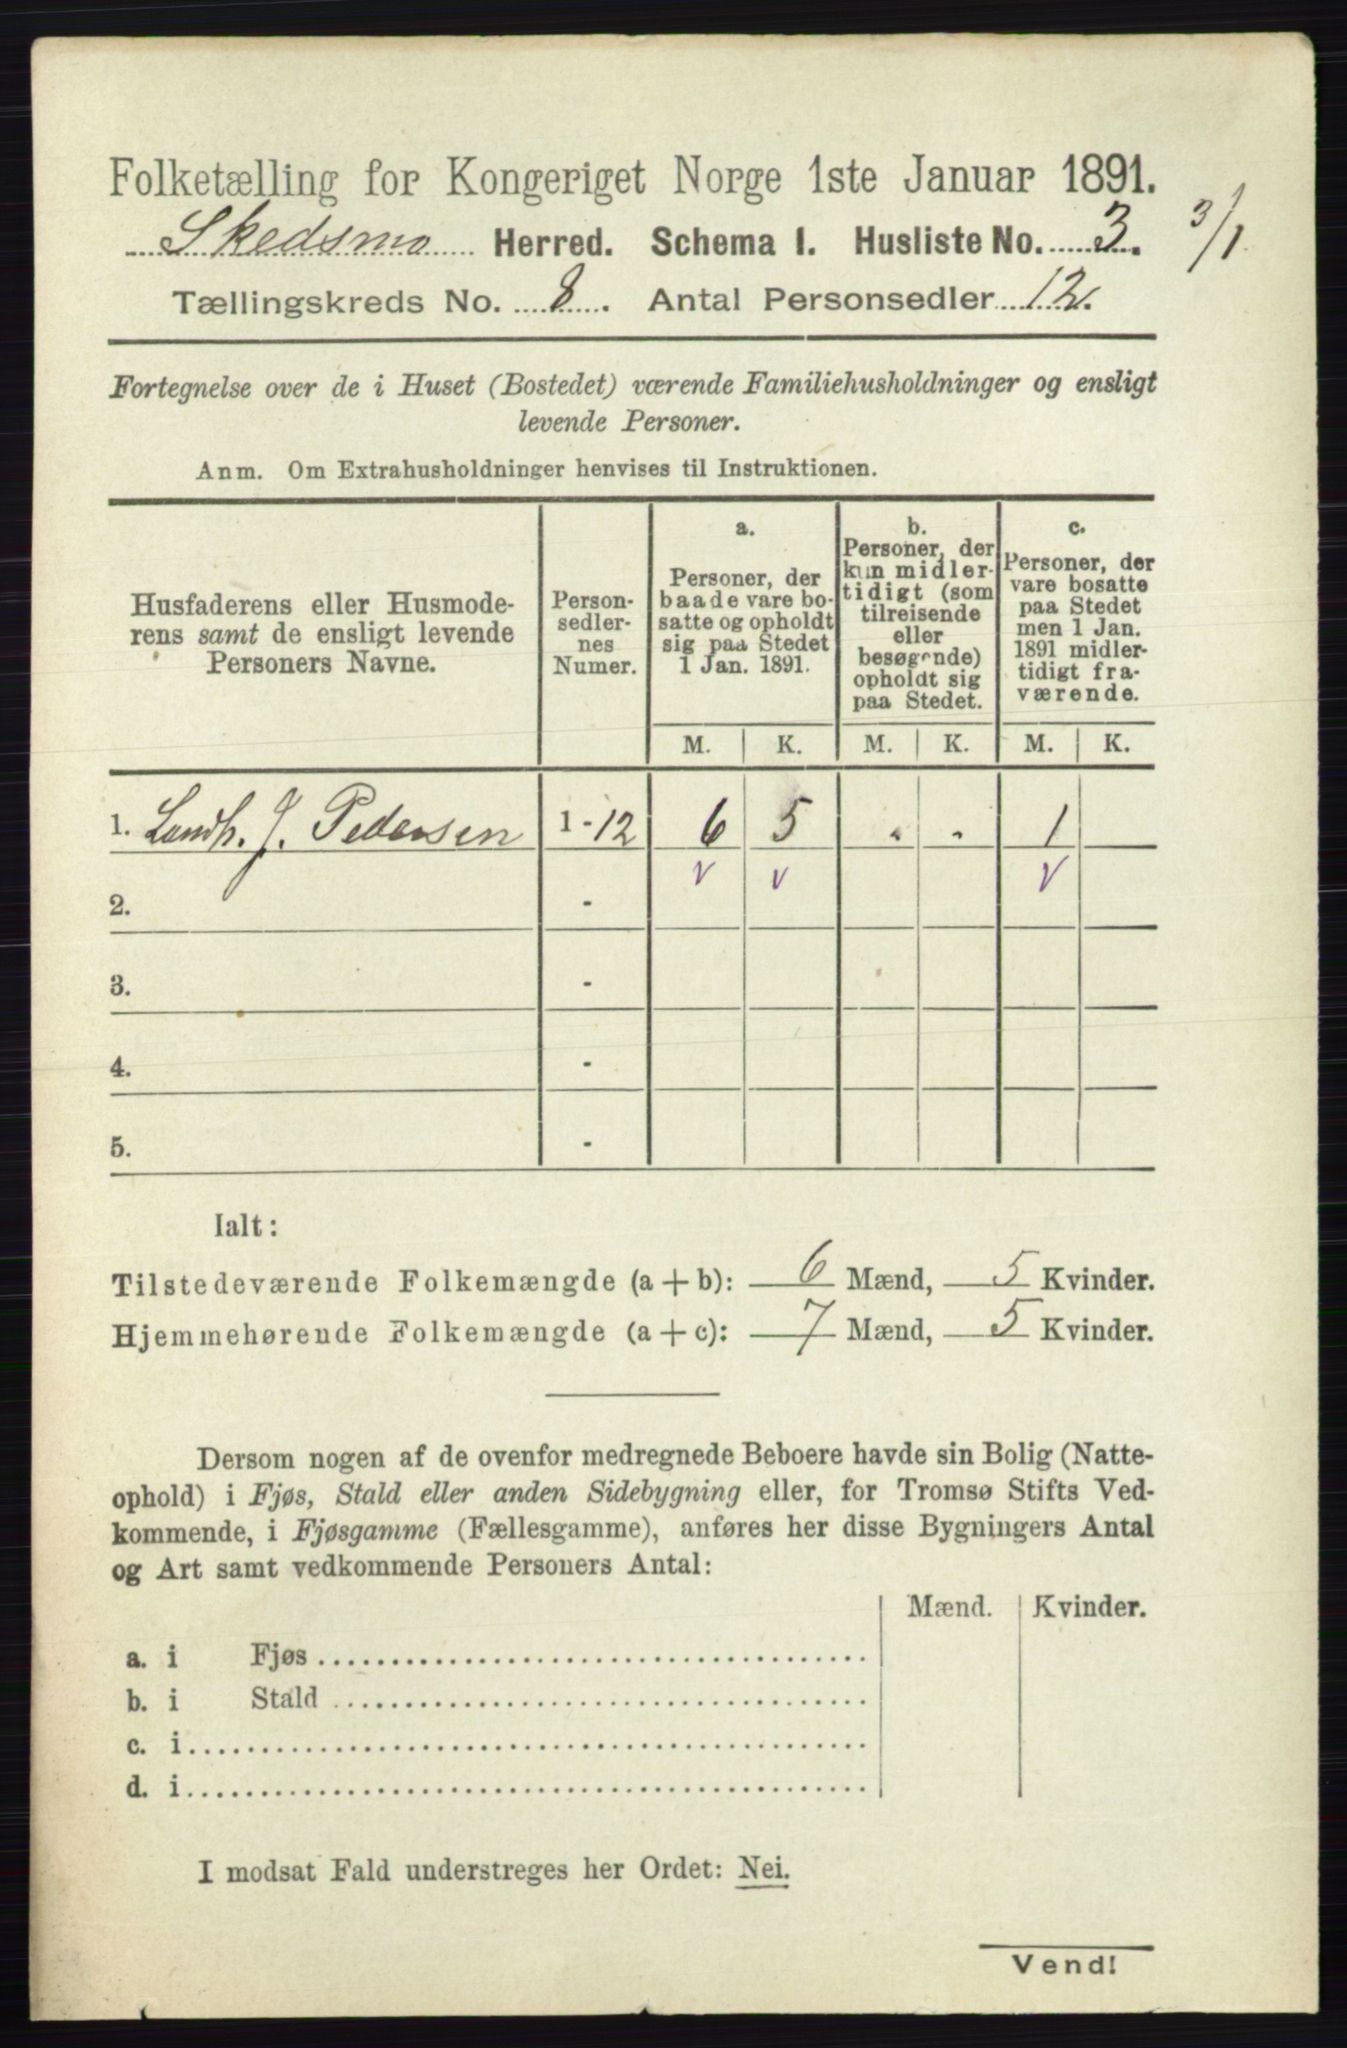 Folketælling for Kongeriget Norge 1ste Januar 1891.
Skedsmo Herred. Schema 1. Husliste No. 3. 3/1
Tællingskreds No. 8. Antal Personsedler 12.
Fortegnelse over de i Huset (Bostedet) værende Familiehusholdninger og ensligt
levende Personer.
Anm. Om Extrahusholdninger henvises til Instruktionen.
Husfaderens eller Husmode-
rens samt de ensligt levende
Personers Navne.
Person-
sedler-
nes
Numer.
a.
Personer, der
baade vare bo-
satte og opholdt
sig paa Stedet
1 Jan. 1891.
b.
Personer, der
kun midler-
tidigt (som
tilreisende
eller
besøgende)
opholdt sig
paa Stedet.
c.
Personer, der
vare bosatte
paa Stedet
men 1 Jan.
1891 midler-
tidigt fra-
værende.
M. K. M. K. M. K.
1. Landh. J. Pedersen 1-12 6 5 " " 1
v v v
2. -
3. -
4. -
5. -
Ialt:
Tilstedeværende Folkemængde (a + b): 6 Mænd, 5 Kvinder.
Hjemmehørende Folkemængde (a + c): 7 Mænd, 5 Kvinder.
Dersom nogen af de ovenfor medregnede Beboere havde sin Bolig (Natte-
ophold) i Fjøs, Stald eller anden Sidebygning eller, for Tromsø Stifts Ved-
kommende, i Fjøsgamme (Fællesgamme), anføres her disse Bygningers Antal
og Art samt vedkommende Personers Antal:
Mænd. Kvinder.
a. i Fjøs
b. i Stald
c. i
d. i
I modsat Fald understreges her Ordet: Nei.
Vend!